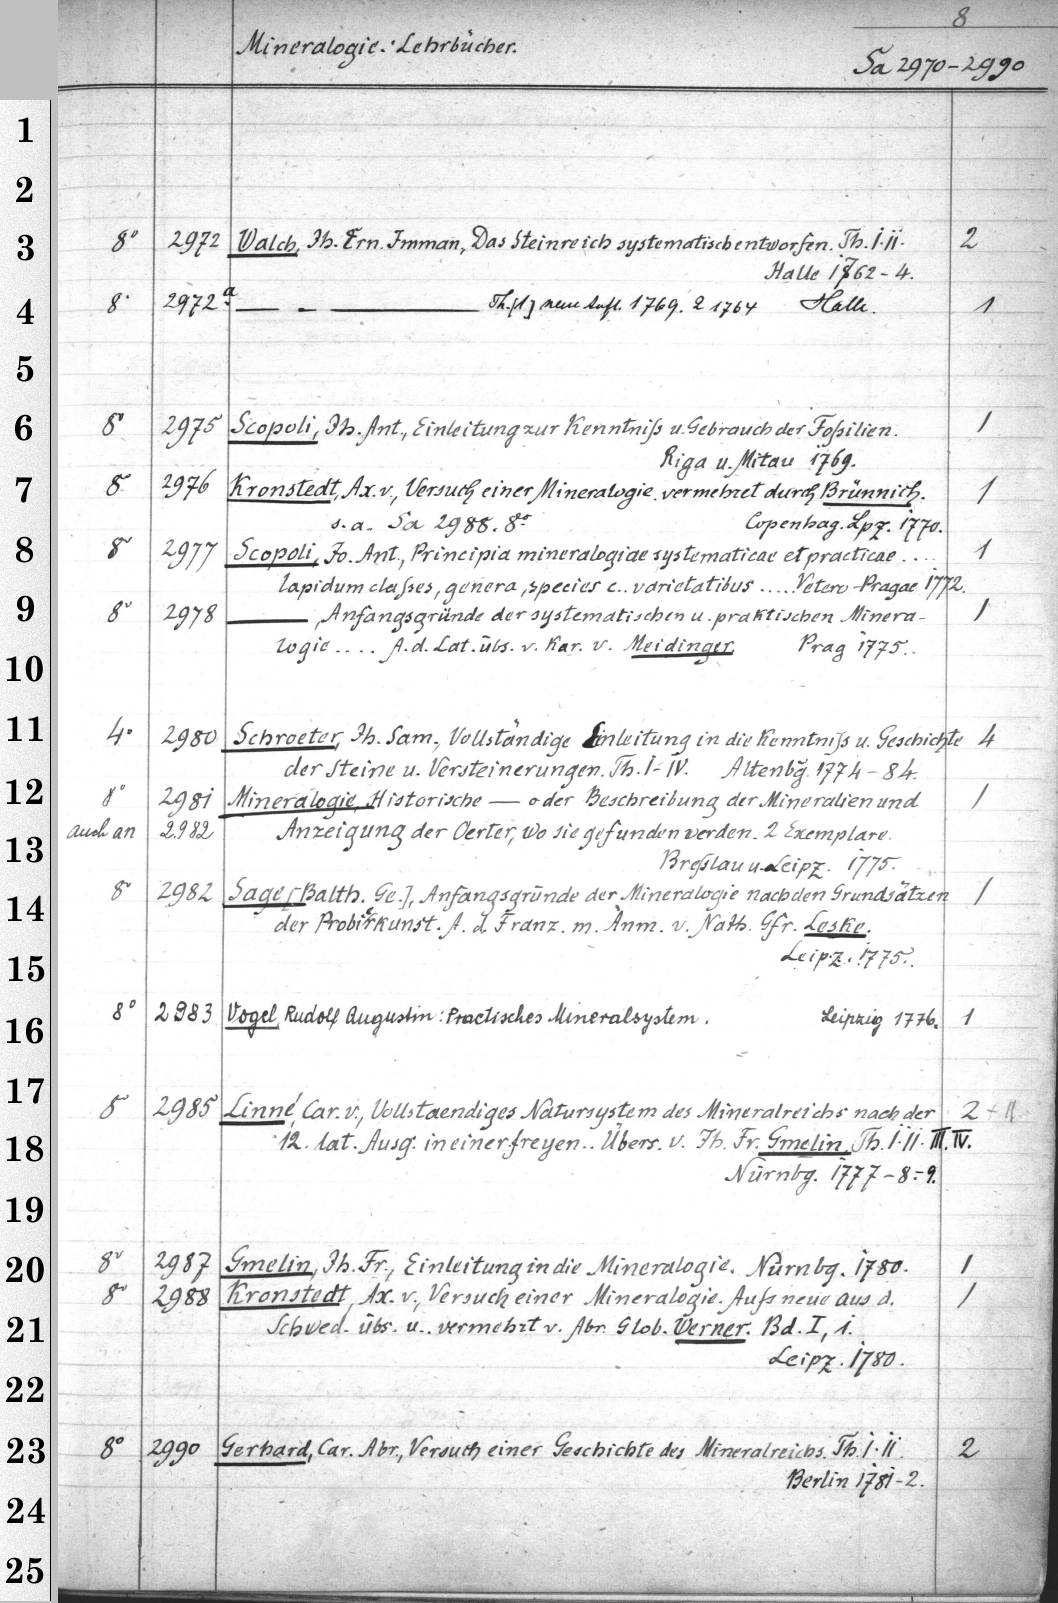 8
Mineralogie. Lehrbücher.
Sa 2970-2990
1
2
3 8° 2972 Walch, Jh. Ern. Imman, Das Steinreich systematisch entworfen. Th. I.II. 2
Halle 1762-4.
4 8° 2972a — - — Th. [1] neue Aufl. 1769. 2 1764 Halle. 1
5
6 8° 2975 Scopoli, Jh. Ant., Einleitung zur Kenntniß u. Gebrauch der Foßilien. 1
Riga u. Mitau 1769.
7 8° 2976 Kronstedt, Ax. v., Versuch einer Mineralogie. vermehret durch Brünnich. 1
s. a. Sa 2988. 8° Copenhag. Lpz. 1770.
8 8° 2977 Scopoli, Jo. Ant., Principia mineralogiae systematicae et practicae .... 1
lapidum classes, genera, species c. varietatibus ..... Vetero-Pragae 1772.
9 8° 2978 — , Anfangsgründe der systematischen u. praktischen Minera- 1
logie .... A. d. Lat. übs. v. Kar. v. Meidinger. Prag 1775.
10
11 4° 2980 Schroeter, Jh. Sam., Vollständige Einleitung in die Kenntniß u. Geschichte 4
der Steine u. Versteinerungen. Th. I-IV. Altenbg. 1774-84.
12 8° 2981 Mineralogie, Historische — oder Beschreibung der Mineralien und 1
auch an 2982 Anzeigung der Oerter, wo sie gefunden werden. 2 Exemplare.
13 Breslau u. Leipz. 1775.
8° 2982 Sage [Balth. Ge.], Anfangsgründe der Mineralogie nach den Grundsätzen 1
14 der Probierkunst. A. d. Franz. m. Anm. v. Nath. Gfr. Leske.
15 Leipz. 1775.
16 8° 2983 Vogel, Rudolf Augustin: Practisches Mineralsystem. Leipzig 1776. 1
17 8° 2985 Linné, Car. v., Vollstaendiges Natursystem des Mineralreichs nach der 2 + II
18 12. lat. Ausg. in einer freyen.. Übers. v. Jh. Fr. Gmelin, Th. I.II. III. IV.
Nürnbg. 1777-8-9.
19
20 8° 2987 Gmelin, Jh. Fr., Einleitung in die Mineralogie. Nürnbg. 1780. 1
8° 2988 Kronstedt, Ax. v., Versuch einer Mineralogie. Aufs neue aus d. 1
21 Schwed. übs. u.. vermehrt v. Abr. Glob. Werner. Bd. I, 1.
Leipz. 1780.
22
23 8° 2990 Gerhard, Car. Abr., Versuch einer Geschichte des Mineralreichs. Th. I.II. 2
Berlin 1781-2.
24
25